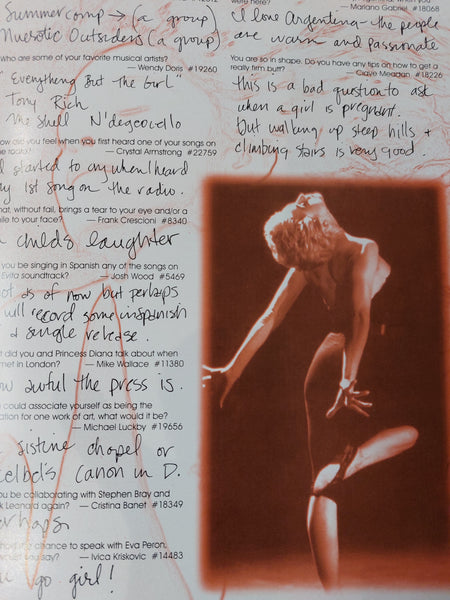 Summercamp → (a group)
Nuerotic Outsiders (a group)
who are some of your favorite musical artists?
— Wendy Doris #19260
"Everything But The Girl"
Tony Rich
Me Shell N'degeocello
did you feel when you first heard one of your songs on
radio? — Crystal Armstrong #22759
started to cry when I heard
1st song on the radio.
that, without fail, brings a tear to your eye and/or a
to your face? — Frank Crescioni #8340
childs laughter
you be singing in Spanish any of the songs on
Evita soundtrack? — Josh Wood #5469
as of now but perhaps
will record some in spanish
& single release.
did you and Princess Diana talk about when
met in London? — Mike Wallace #11380
awful the press is.
could associate yourself as being the
for one work of art, what would it be?
— Michael Luckby #19656
sistine chapel or
canon in D.
you be collaborating with Stephen Bray and
Leonard again? — Cristina Banet #18349
chance to speak with Eva Peron,
say? — Ivica Kriskovic #14483
go girl!
were here?
— Mariano Gabriel #18068
I love Argentina - the people
are warm and passionate
You are so in shape. Do you have any tips on how to get a
really firm butt? — Clave Meagan #18226
this is a bad question to ask
when a girl is pregnant.
But walking up steep hills +
climbing stairs is very good